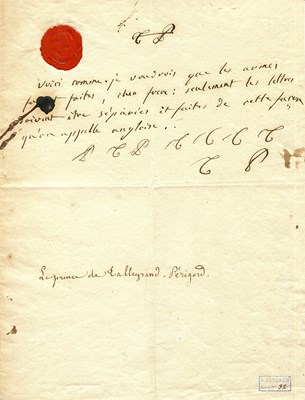 T P
voici comme je voudrois que les armes
fussent faites, cher  : seulement les lettres
doivent être séparées et faites de cette façon
qu'on appelle angloise..
P T P T T T T
T P
Le prince de Talleyrand-Périgord.